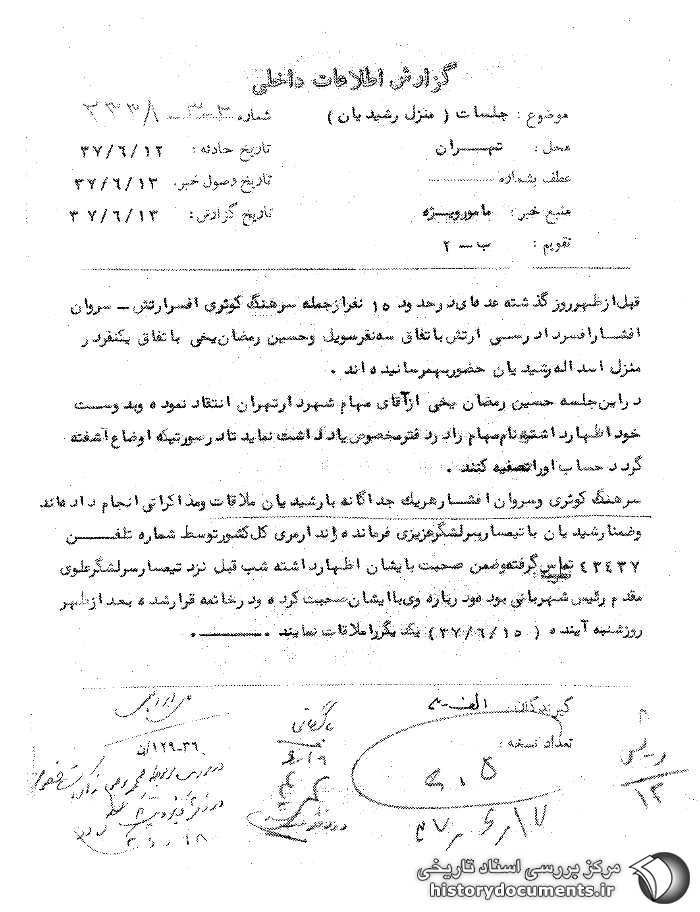 گزارش اطلاعات داخلی
موضوع : جلسات ( منزل رشیدیان )
شماره
محل : تهـــران
تاریخ حادثه : ۳۷/۶/۱۲
عطف بشماره
تاریخ وصول خبر. ۳۷/۶/۱۳
منبع خبر : مامورویــژه
تاریخ گزارش : ۳۷/۶/۱۳
تقویم : ب – ۲
قبل ازظهرروز گذشته عده‌ای درحدود ۱۵ نفرازجمله سرهنگ کوثری افسرارتش – سروان
افشارافسرد ادرسی ارتش باتفاق سه‌نفرسویل وحسین رمضان یخی باتفاق یکنفردر
منزل اسداله رشیدیان حضوربهمرسانیده اند .
دراین جلسه حسین رمضان یخی ازآقای مهام شهردارتهران انتقاد نموده وبدوست
خود اظهارداشته‌نام مهام رادردفترمخصوص یادداشت نماید تادرصورتیکه اوضاع آشفته
گردد حساب اوراتصفیه کنند .
سرهنگ کوثری وسروان افشارهریك جداگانه بارشیدیان ملاقات ومذاکراتی انجام داده‌اند
وضمنارشیدیان باتیمسارسرلشگرعزیزی فرمانده ژاندارمری کل کشورتوسط شماره تلفـــن
۴۲۴۳۷ تماس گرفته‌وضمن صحبت بایشان اظهارداشته شب قبل نزد تیمسارسرلشگرعلوی
مقدم رئیس شهربانی بوده‌ودرباره وی باایشان صحبت کرده ودرخاتمه قرارشده بعدازظهر
روزشنبه آینده ( ۳۷/۶/۱۵ ) یکدیگرراملاقات نمایند .ــــــ.
گیرندگان:
تعداد نسخه :
مرکز بررسی اسناد تاریخی
historydocuments.ir